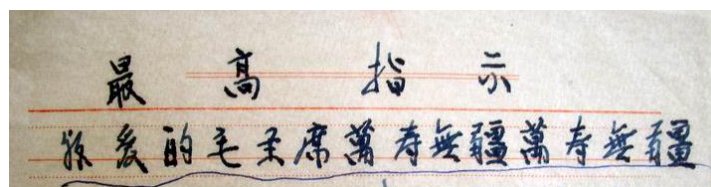 最高指示
敬爱的毛主席萬寿無疆萬寿無疆